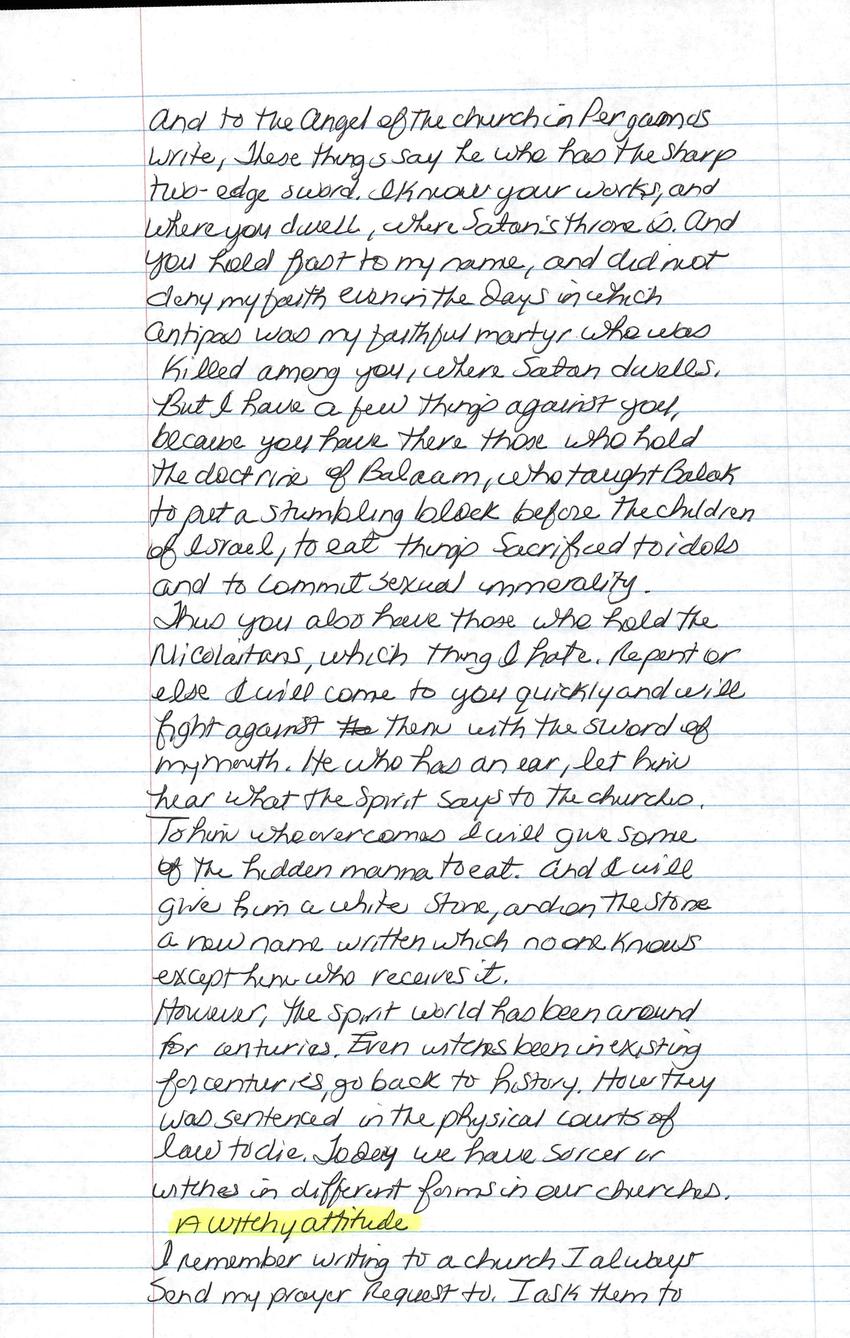 And to the Angel of the church in Pergamos
write, These things say he who has the sharp
two-edge sword. I know your works, and
where you dwell, where Satan's throne is. And
you hold fast to my name, and did not
deny my faith even in the days in which
Antipas was my faithful martyr who was
killed among you, where Satan dwells.
But I have a few things against you,
because you have there those who hold
the doctrine of Balaam, who taught Balak
to put a stumbling block before the children
of Israel, to eat things sacrificed to idols
and to commit sexual immorality.
Thus you also have those who hold the
Nicolaitans, which thing I hate. Repent or
else I will come to you quickly and will
fight against the them with the sword of
my mouth. He who has an ear, let him
hear what the Spirit says to the churches.
To him who overcomes I will give some
of the hidden manna to eat. And I will
give him a white stone, and on the stone
a new name written which no one knows
except him who receives it.
However, the spirit world has been around
for centuries. Even witches been in existing
for centuries, go back to history. How they
was sentenced in the physical courts of
law to die. Today we have sorcer or
witches in different forms in our churches.
A witchy attitude
I remember writing to a church I always
send my prayer Request to. I ask them to